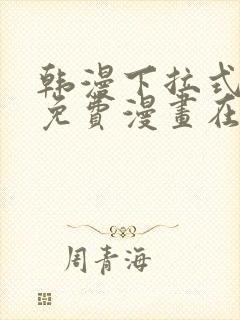 韩漫下拉式
免費漫畫在
周青海